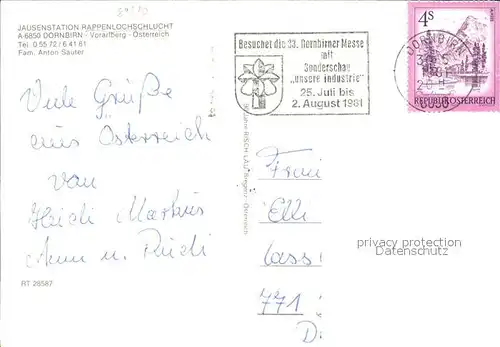 JAUSENSTATION RAPPENLOCHSCHLUCHT
A-6850 DORNBIRN - Vorarlberg - Österreich
Tel. 0 55 72 / 6 41 61
Fam. Anton Sauter
Besuchet die 33. Dornbirner Messe
mit
Sonderschau
"unsere Industrie"
25. Juli bis
2. August 1981
4S
REPUBLIK ÖSTERREICH
DORNBIRN
6850
Viele Grüße
aus Österreich
von
Heidi Markus
Anni u. Ruedi
RT 28587
RISCH-LAU, Bregenz - Österreich
Frau
Elli
771
D
privacy protection
Datenschutz